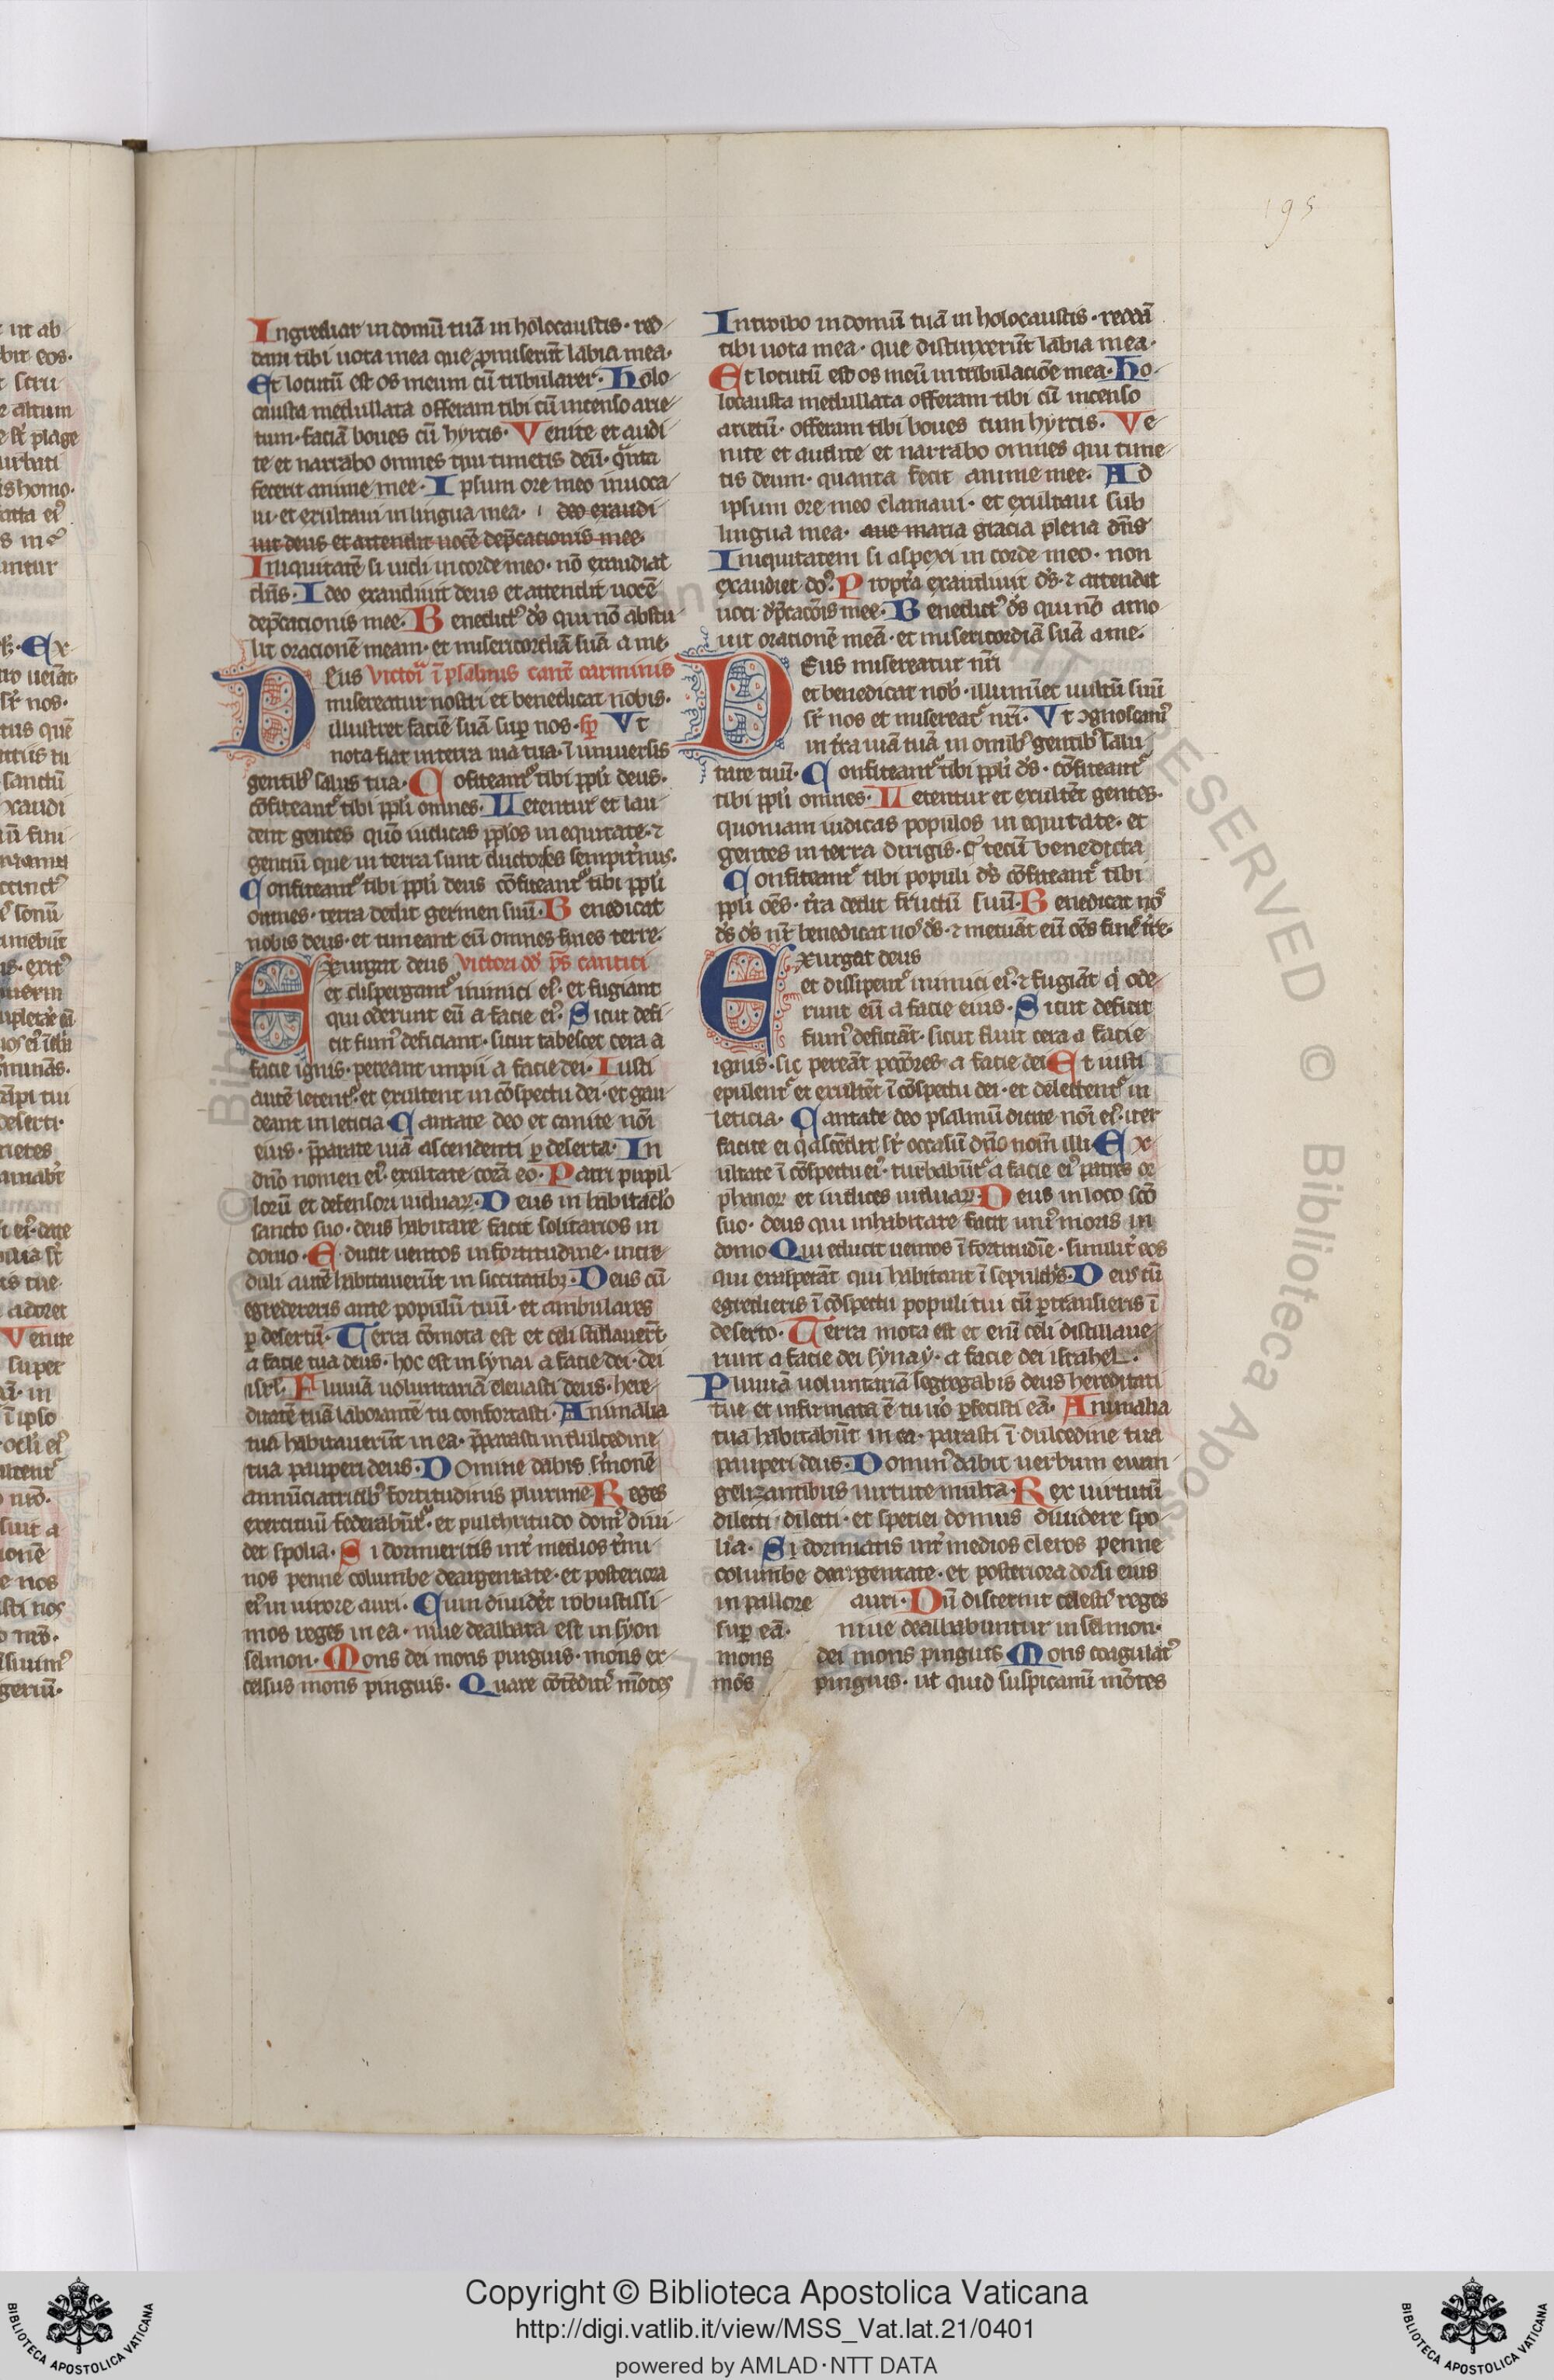 195
Ingrediar in domū tuā in holocaustis · red-
dam tibi uota mea que ꝓmiserūt labia mea·
Et locutū est os meum cū tribularer· Holo-
causta medullata offeram tibi cū incenso arie-
tum· faciā boues cū hyrcis· Venite et audi-
te et narrabo omnes qui timetis deū· quāta
fecerit anime mee· Ipsum ore meo inuoca-
ui· et exultaui in lingua mea· deo exaudi-
uit deus et attendit uocē dep̄cationis mee·
Iniquitatē si uidi in corde meo· nō exaudiat
dn̄s· Ideo exaudiuit deus et attendit uocē
dep̄cationis mee· Benedict᾽ ds̄ qui nō abstu-
lit orationē meam· et misericordiā suā a me·
Deus victorī ī psalmis cant̄ carminis
misereatur nostri et benedicat nobis·
illustret faciē suā sup̄ nos· sp̄ Vt
nota fiat in terra uia tua· ī uniuersis
gentib᾽ salus tua· Cōfiteant᾽ tibi pp̄li deus·
cōfiteant᾽ tibi pp̄li omnes· Letentur et lau-
dent gentes quō iudicas pp̄los in equitate· ⁊
gentiū que in terra sunt ductor es sempit᾽nus·
Confiteant᾽ tibi pp̄li deus cōfiteant᾽ tibi pp̄li
omnes· terra dedit germen suū· Benedicat
nobis deus· et timeant eū omnes fines terre·
Exurgat deus victori dd̄ ps̄ cantici
et dispergant᾽ inimici ei᾽· et fugiant
qui oderunt eū a facie ei᾽· Sicut defi-
cit fum᾽ deficiant· sicut tabescet cera a
facie ignis· pereant impii a facie dei· Iusti
autē letent᾽· et exultent in cōspectu dei· et gau-
deant in leticia· Cantate deo et canite nōi
eius· p̄parate uiā ascendenti ꝑ deserta· In
dn̄o nomen ei᾽· exultate corā eo· Patri pupil-
lorū et defensori uiduaꝝ· Deus in habitac̄lo
sancto suo· deus habitare facit solitarios in
domo· Educit uentos in fortitudine· incre-
duli autē habitauerūt in siccitatibꝫ· Deus cū
egredereris ante populū tuū· et ambulares
ꝑ desertū· Terra cōmota est et celi stillauerūt·
a facie tua deus· hoc est in synai a facie dei· dei
isrl̄· Pluuiā uoluntariā eleuasti deus· here-
ditatē tuā laborantē tu confortasti· Animalia
tua habitauerūt in ea· p̄parasti in dulcedine
tua pauperi deus· Domine dabis s᾽monē
annūciatricib᾽ fortitudinis plurime Reges
exercituū federabūt᾽· et pulchritudo dom᾽ diui-
det spolia· Si dormieritis int᾽ medios t᾽mi-
nos penne columbe deargentate· et posteriora
ei᾽ in uirore auri· Cum diuid᾽et robustissi-
mos reges in ea· niue dealbata est in syon
selmon· Mons dei mons pinguis· mons ex-
celsus mons pinguis· Quare cōtēdit᾽ mōtes
Introibo in domū tuā in holocaustis· reddā
tibi uota mea· que distinxerūt labia mea·
Et locutū est os meū in tribulaciōe mea· Ho-
locausta medullata offeram tibi cū incenso
arietū· offeram tibi boues cum hyrcis· Ve-
nite et audite et narrabo omnes qui time-
tis deum· quanta fecit anime mee· Ad
ipsum ore meo clamaui· et exultaui sub
lingua mea· aue maria gracia plena dn̄s
Iniquitatem si aspexi in corde meo· non
exaudiet do᾽· Propt᾽a exaudiuit ds̄· ⁊ attendit
uoci dp̄cacōis mee· Benedict᾽ ds̄ qui nō amo-
uit orationē meā· et misericordiā suā a me·
Deus misereatur nr̄i
et benedicat nob᾽· illuminet uultū suū
sr̄ nos et misereat᾽ nr̄i· Vt ꝯgnoscam᾽
in t᾽ra uiā tuā in omīb᾽ gentib᾽ salu-
tare tuū· Confiteant᾽ tibi pp̄li ds̄· cōfiteant᾽
tibi pp̄li omnes· Letentur et exultēt gentes·
quoniam iudicas populos in equitate· et
gentes in terra dirigis· tecū benedicta
Confiteant᾽ tibi populi ds̄ cōfiteant᾽ tibi
pp̄li oēs· t᾽ra dedit fructū suū· Benedicat nos
ds̄ ds̄ nr̄ benedicat nos ds̄· ⁊ metuāt eū oēs fines t᾽re·
Exurgat deus
et dissipent᾽ inimici ei᾽· ⁊ fugiāt q᾽ ode-
runt eū a facie eius· Sicut deficit
fum᾽ deficiāt· sicut fluit cera a facie
ignis· sic pereāt pctōres a facie dei Et iusti
epulent᾽ et exultēt ī cōspectu dei· et delectent᾽ in
leticia· Cantate deo psalmū dicite nōi ei᾽· iter
facite ei q᾽ ascēdit sr̄ occasū dn̄s nom̄ illi Ex-
ultate ī cōspectu ei᾽· turbabūt᾽ a facie ei᾽ patris or-
phanoꝝ et iudices uiduaꝝ· Deus in loco scō
suo· deus qui inhabitare facit uni᾽ moris in
domo Qui educit uinctos ī fortitudīe· similit᾽ eos
qui exasperāt qui habitant ī sepulch᾽s· Deus cū
egredieris ī cōspectu populi tui cū ꝑtransieris ī
deserto· Terra mota est et enī celi distillaue-
runt a facie dei synay· a facie dei israhel·
Pluuiā uoluntariā segregabis deus hereditati
tue et infirmata ē tu uo᾽ ꝑfecisti eā· Animalia
tua habitabūt in ea· parasti ī dulcedine tua
pauperi deus· Domin᾽ dabit uerbum euan-
gelizantibus uirtute multa· Rex uirtutū
dilecti· dilecti· et speciei domus diuidere spo-
lia· Si dormiatis int᾽ medios cleros penne
columbe deargentate· et posteriora dorsi eius
in pallore auri· Dū discernit celest᾽ reges
sup̄ eā· niue dealbabuntur in selmon·
mons dei mons pinguis Mons coagulat᾽
mōs pinguis· ut quid suspicami mōtes
Copyright © Biblioteca Apostolica Vaticana
http://digi.vatlib.it/view/MSS_Vat.lat.21/0401
powered by AMLAD·NTT DATA
BIBLIOTECA APOSTOLICA VATICANA
BIBLIOTECA APOSTOLICA VATICANA